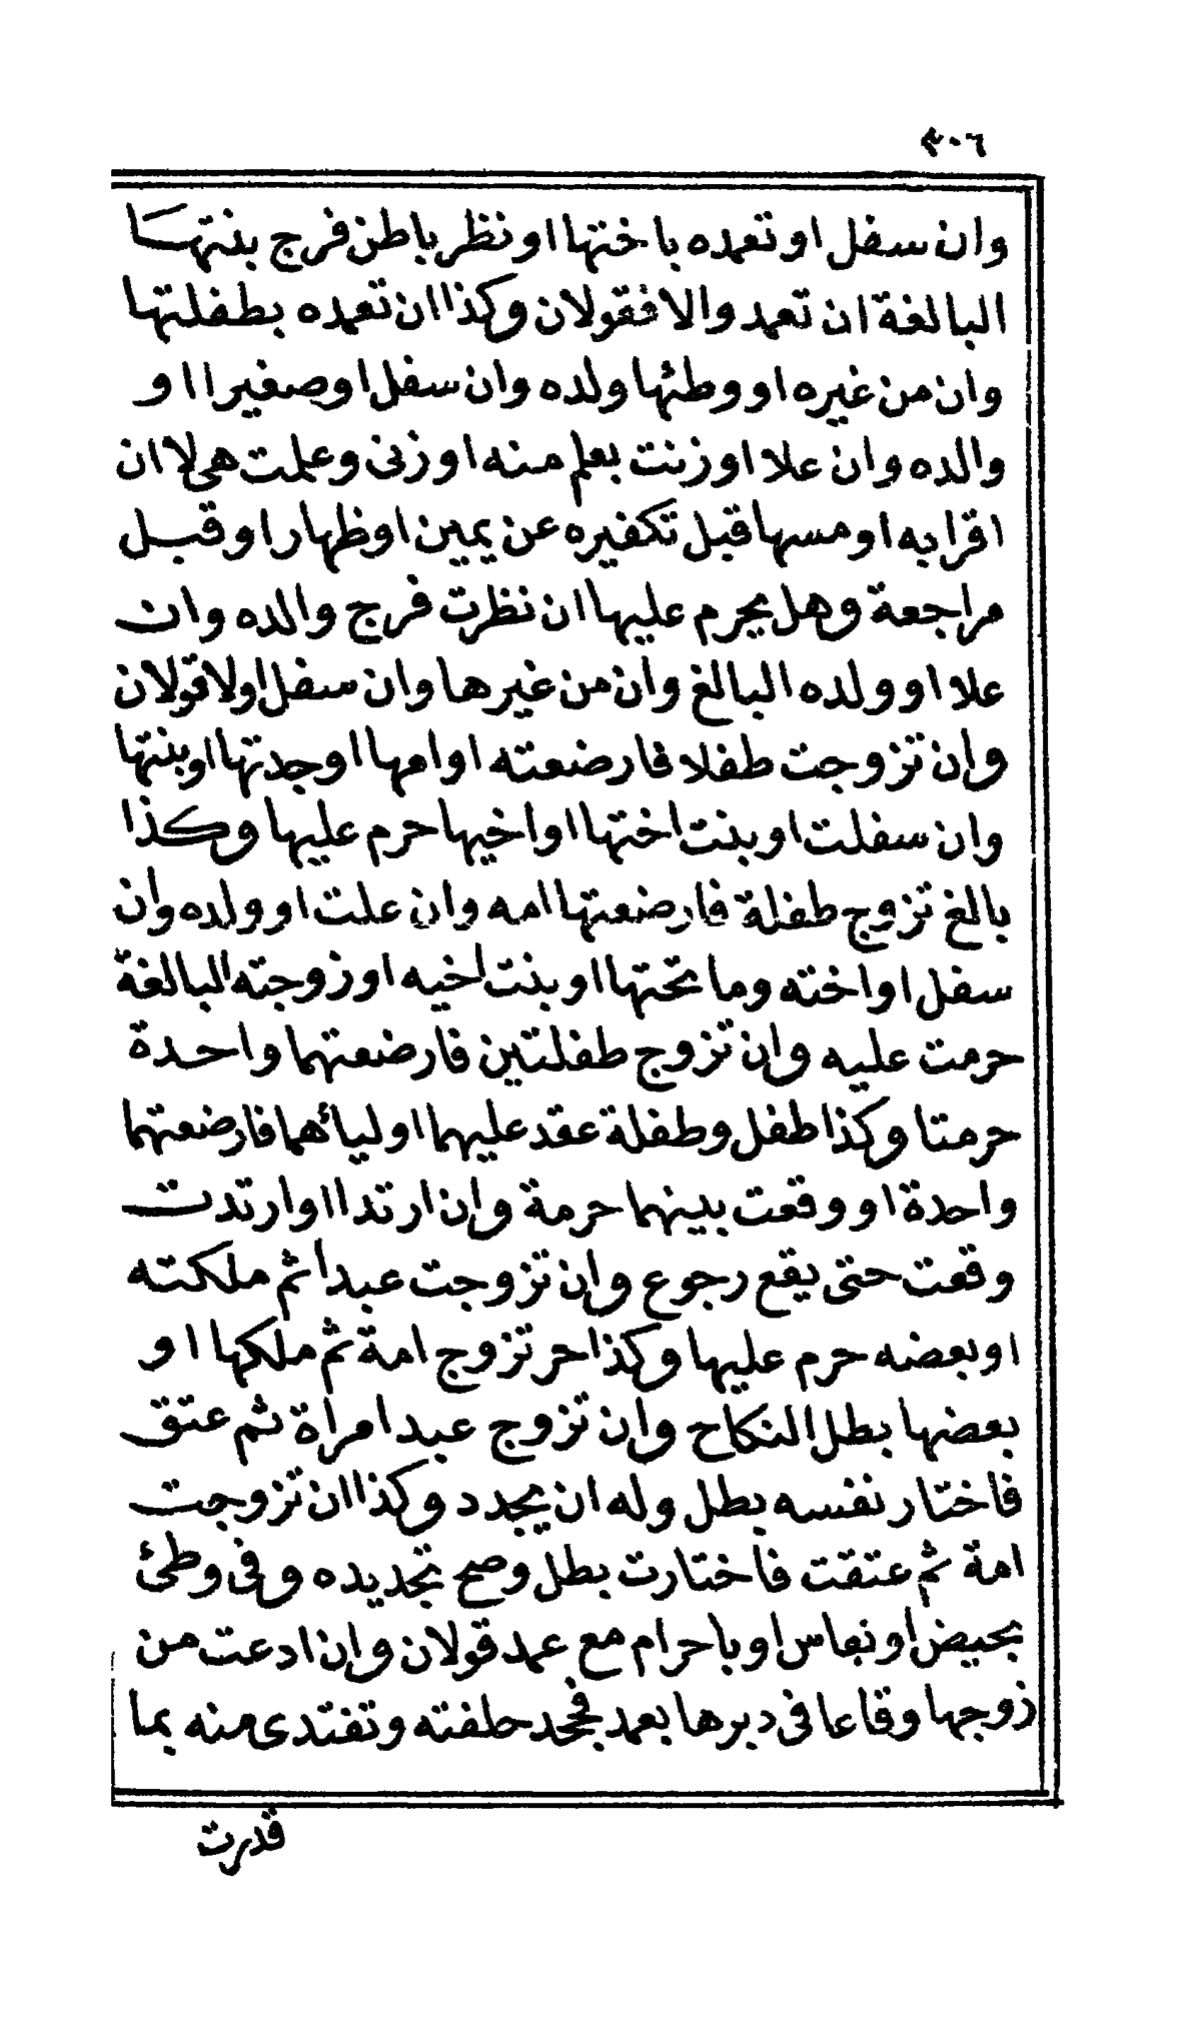 ٣٠٦
وان سفل او تعمده باختها او نظر باطن فرج بنتها
البالغة ان تعمد والا فقولان وكذا ان تعمده بطفلتها
وان من غيره او وطئها ولده وان سفل او صغيرا او
والده وان علا او زنت بعلم منه او زنى وعلمت هى لا ان
اقرا به او مسها قبل تكفيره عن يمين او ظهار او قبل
مراجعة وهل يحرم عليها ان نظرت فرج والده وان
علا او ولده البالغ وان من غيرها وان سفل اولا قولان
وان تزوجت طفلا فارضعته او امها او جدتها او بنتها
وان سفلت او بنت اختها او اخيها حرم عليها وكذا
بالغ تزوج طفلة فارضعتها امه وان علت او ولده وان
سفل او اخته وما تحتها او بنت اخيه او زوجته البالغة
حرمت عليه وان تزوج طفلتين فارضعتهما واحدة
حرمتا وكذا طفل وطفلة عقد عليهما اوليائهما فارضعتهما
واحدة او وقعت بينهما حرمة وان ارتدا او ارتدت
وقعت حتى يقع رجوع وان تزوجت عبدا ثم ملكته
او بعضه حرم عليها وكذا حر تزوج امة ثم ملكها او
بعضها بطل النكاح وان تزوج عبد امراة ثم عتق
فاختار نفسه بطل وله ان يجدد وكذا ان تزوجت
امة ثم عتقت فاختارت بطل وصح تجديده وفى وطئ
بحيض او نفاس او باحرام مع عمد قولان وان ادعت من
زوجها وقاعا فى دبرها بعمد فجحد حلفته وتفتدى منه بما
قدرت